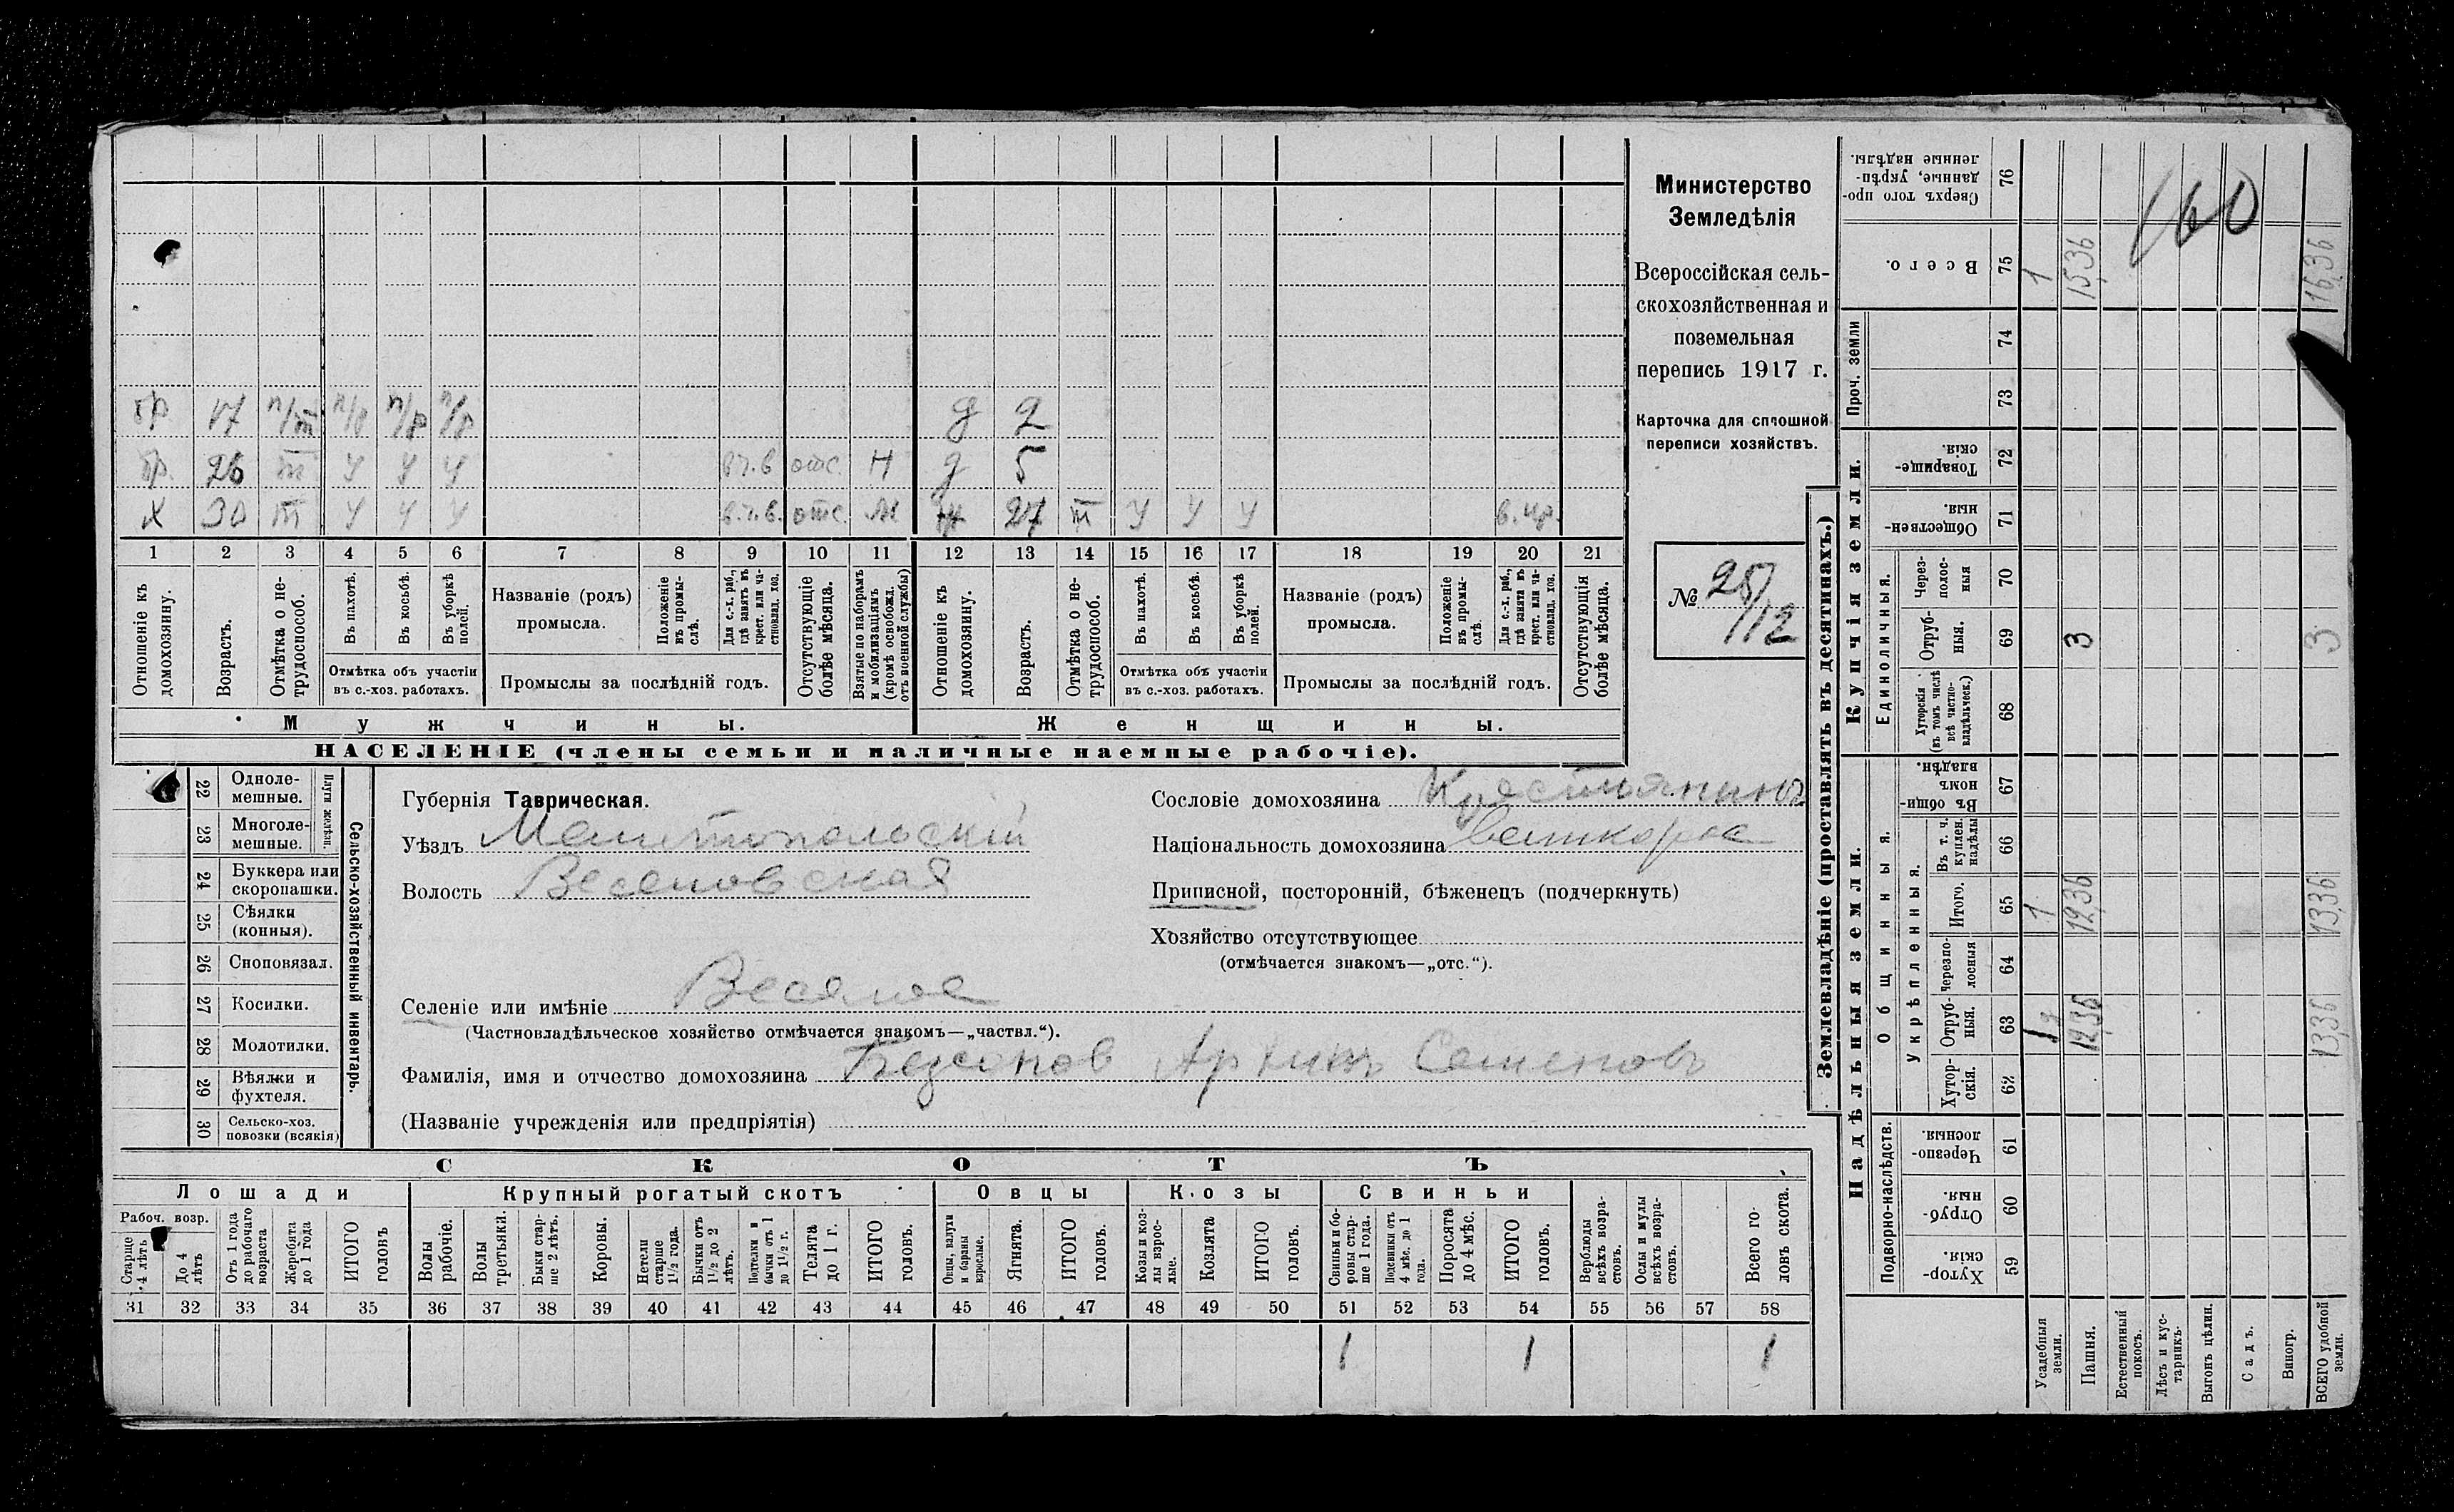 Министерство
Земледѣлія
Всероссійская сель-
скохозяйственная и
поземельная
перепись 1917 г.
Карточка для сплошной
переписи хозяйствъ.
№ 25/112
160
бр. 17 п/т п/р п/р п/р д 2
бр. 26 т у у у в.ч.в отс. Н д 5
х 30 т у у у в.ч.в. отс. ж 27 т у у у
1 2 3 4 5 6 7 8 9 10 11 12 13 14 15 16 17 18 19 20 21
Отношеніе къ домохозяину.
Возрастъ.
Отмѣтка о не-трудоспособ.
Въ пахотѣ.
Въ косьбѣ.
Въ уборкѣ полей.
Отмѣтка объ участіи
въ с.-хоз. работахъ.
Названіе (родъ)
промысла.
Положеніе въ промы-слѣ.
Для с.-х. раб., гдѣ занятъ въ крест. или ча-стновлад. хоз.
Промыслы за послѣдній годъ.
Отсутствующіе болѣе мѣсяца.
Взятые по наборамъ и мобилизаціямъ (кромѣ освобожд. отъ военной службы)
Отношеніе къ домохозяину.
Возрастъ.
Отмѣтка о не-трудоспособ.
Въ пахотѣ.
Въ косьбѣ.
Въ уборкѣ полей.
Отмѣтка объ участіи
въ с.-хоз. работахъ.
Названіе (родъ)
промысла.
Положеніе въ промы-слѣ.
Для с.-х. раб., гдѣ занята въ крест. или ча-стновлад. хоз.
Промыслы за послѣдній годъ.
Отсутствующія болѣе мѣсяца.
Мужчины. Женщины.
НАСЕЛЕНІЕ (члены семьи и наличные наемные рабочіе).
Сельско-хозяйственный инвентарь.
Плуги желѣзн.
22 Одноле-мешные.
23 Многоле-мешные.
24 Буккера или скоропашки.
25 Сѣялки (конныя).
26 Сноповязал.
27 Косилки.
28 Молотилки.
29 Вѣялки и фухтеля.
30 Сельско-хоз. повозки (всякія)
Губернія Таврическая.
Уѣздъ Мелитопольскій
Волость Веселовская
Сословіе домохозяина Крестьянинъ
Національность домохозяина великорос
Приписной, посторонній, бѣженецъ (подчеркнуть)
Хозяйство отсутствующее
(отмѣчается знакомъ—„отс.“).
Селеніе или имѣніе Веселое
(Частновладѣльческое хозяйство отмѣчается знакомъ—„частвл.“).
Фамилія, имя и отчество домохозяина Безсонов Семенов
(Названіе учрежденія или предпріятія)
СКОТЪ
Лошади Крупный рогатый скотъ Овцы Козы Свиньи
Рабоч. возр.
Старше 4 лѣтъ
До 4 лѣтъ
Отъ 1 года до рабочаго возраста
Жеребята до 1 года
ИТОГО головъ
Волы рабочіе.
Волы третьяки.
Быки стар-ше 2 лѣтъ.
Коровы.
Нетели старше 1½ года.
Бычки отъ 1½ до 2 лѣтъ.
Подтелки и бычки отъ 1 до 1½ г.
Телята до 1 г.
ИТОГО головъ.
Овцы, валухи и бараны взрослые.
Ягнята.
ИТОГО головъ.
Козы и коз-лы взрос-лые.
Козлята
ИТОГО головъ.
Свиньи и бо-ровы стар-ше 1 года.
Подсвинки отъ 4 мѣс. до 1 года.
Поросята до 4 мѣс.
ИТОГО головъ.
Верблюды всѣхъ возра-стовъ.
Ослы и мулы всѣхъ возра-стовъ.
Всего го-ловъ скота.
31 32 33 34 35 36 37 38 39 40 41 42 43 44 45 46 47 48 49 50 51 52 53 54 55 56 57 58
1 1 1
Землевладѣніе (проставлять въ десятинахъ.)
Надѣльныя земли. Купчія земли. Проч. земли
Подворно-наслѣдств. Общинныя. Единоличныя.
Укрѣпленныя.
Хутор-скія. 59
Отруб-ныя. 60
Черезпо-лосныя. 61
Хутор-скія. 62
Отруб-ныя. 63
Черезпо-лосныя 64
Итого. 65
Въ т. ч. куплен. надѣлы 66
Въ общи-номъ владѣн. 67
Хуторскія (въ томъ числѣ всѣ частно-владѣльческ.) 68
Отруб-ныя. 69
Через-полос-ныя 70
Обществен-ныя. 71
Товарище-скія. 72
73
74
Всего. 75
Сверхъ того про-данные, укрѣп-ленные надѣлы. 76
Усадебныя земли. 1 1
Пашня. 12,36 12,36 3 15,36
Естественный покосъ.
Лѣсъ и кус-тарникъ.
Выгонъ цѣлин.
Садъ.
Виногр.
ВСЕГО удобной земли. 13,36 13,36 3 16,36